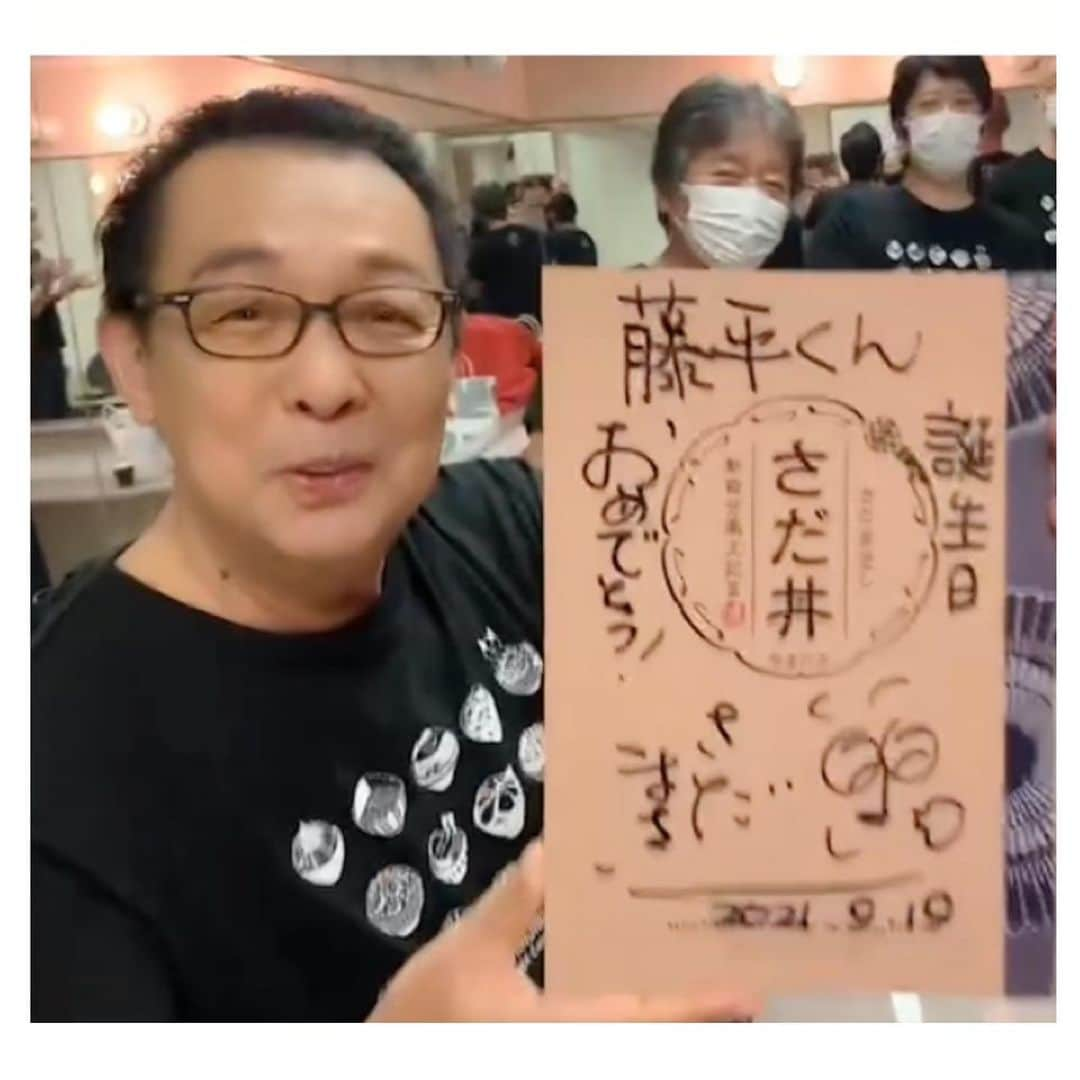 藤平くん、
誕生日
おめでとう!
さだ丼
さだ
まさし
2021.9.19